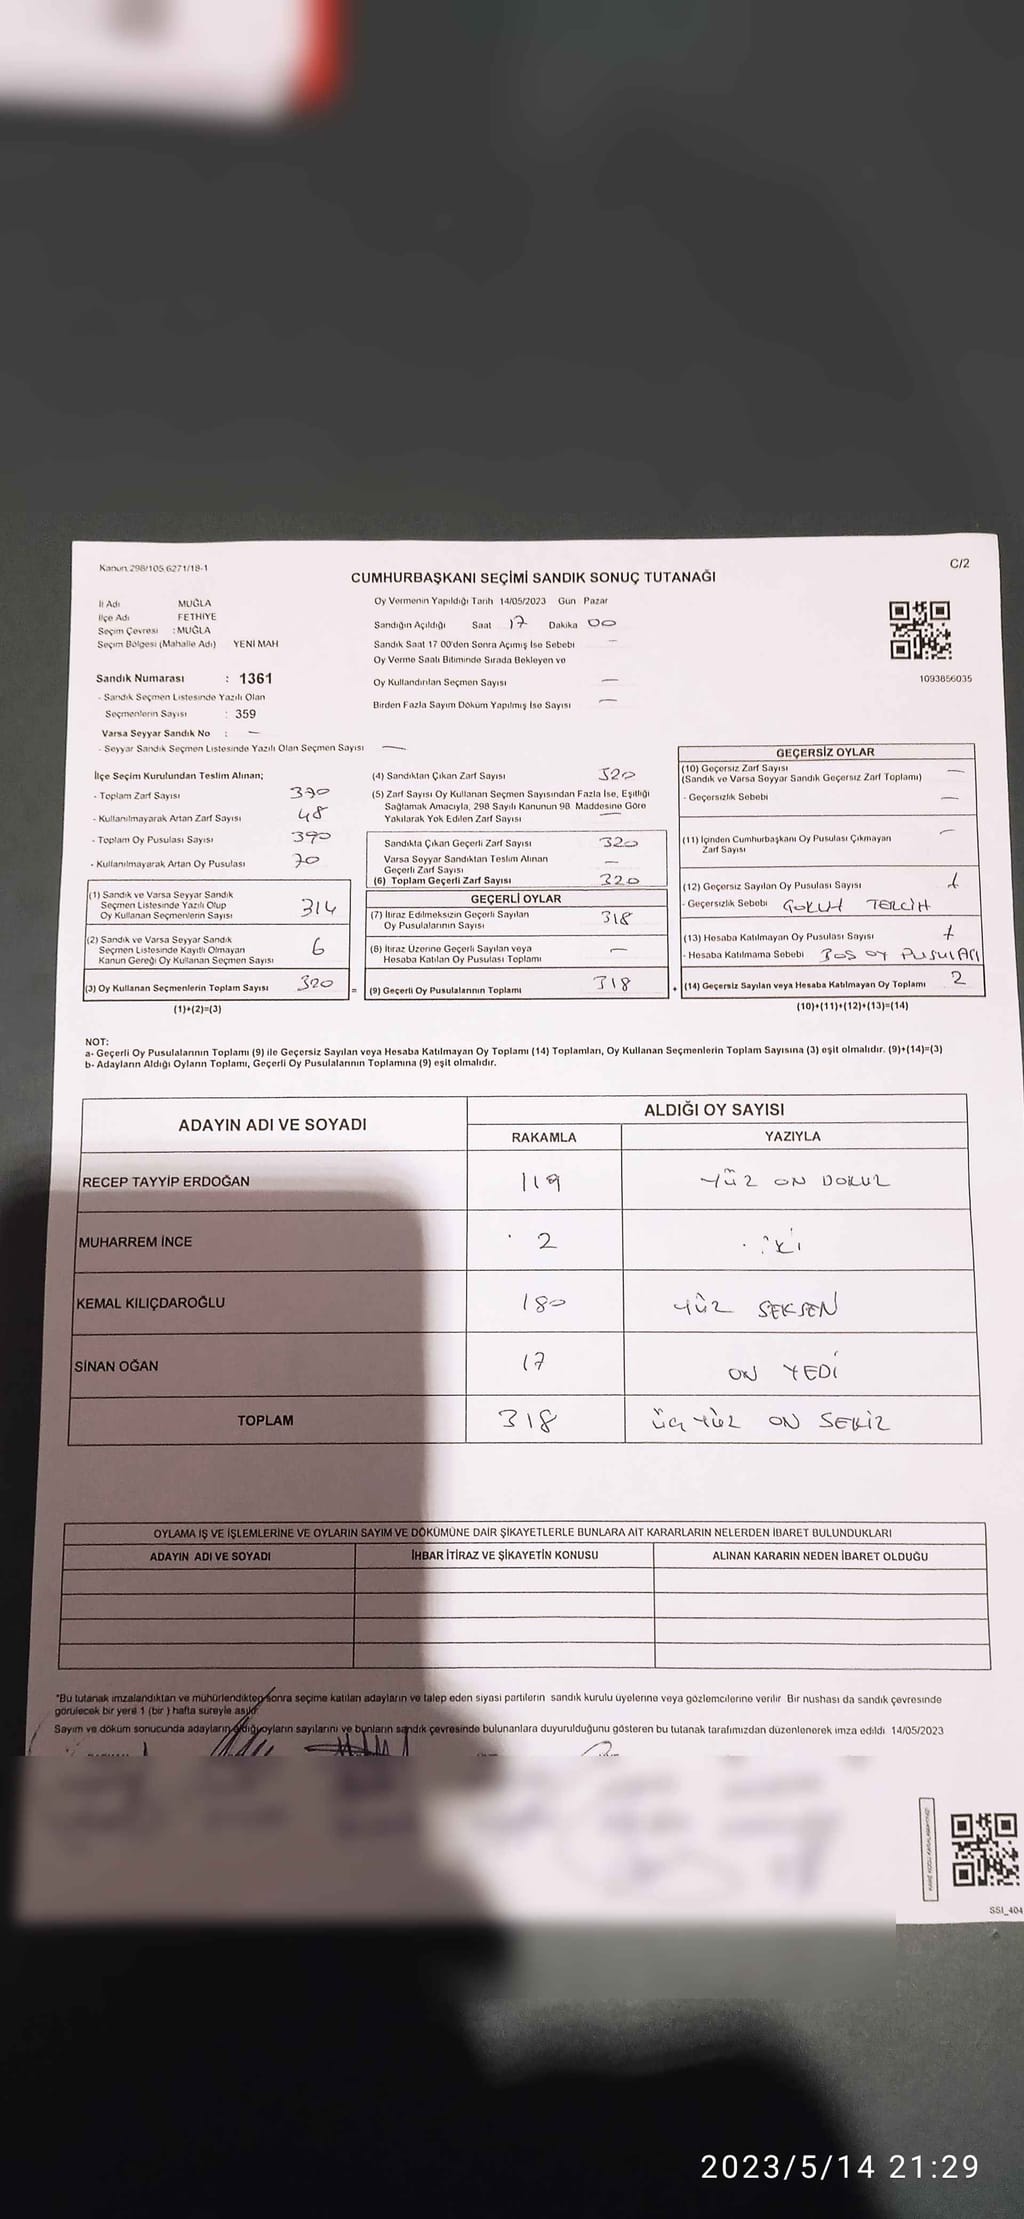 Kanun 298/105 6271/18-1
C/2
CUMHURBAŞKANI SEÇİMİ SANDIK SONUÇ TUTANAĞI
İl Adı MUĞLA
İlçe Adı FETHİYE
Seçim Çevresi : MUĞLA
Seçim Bölgesi (Mahalle Adı) YENİ MAH
Sandık Numarası : 1361
- Sandık Seçmen Listesinde Yazılı Olan
Seçmenlerin Sayısı : 359
Varsa Seyyar Sandık No : —
- Seyyar Sandık Seçmen Listesinde Yazılı Olan Seçmen Sayısı —
Oy Vermenin Yapıldığı Tarih 14/05/2023 Gün Pazar
Sandığın Açıldığı Saat 17 Dakika 00
Sandık Saat 17 00'den Sonra Açımış İse Sebebi —
Oy Verme Saati Bitiminde Sırada Bekleyen ve
Oy Kullandırılan Seçmen Sayısı —
Birden Fazla Sayım Döküm Yapılmış İse Sayısı —
1093856035
İlçe Seçim Kurulundan Teslim Alınan;
- Toplam Zarf Sayısı
- Kullanılmayarak Artan Zarf Sayısı 48
- Toplam Oy Pusulası Sayısı 390
- Kullanılmayarak Artan Oy Pusulası 70
(1) Sandık ve Varsa Seyyar Sandık
Seçmen Listesinde Yazılı Olup
Oy Kullanan Seçmenlerin Sayısı 314
(2) Sandık ve Varsa Seyyar Sandık
Seçmen Listesinde Kayıtlı Olmayan
Kanun Gereği Oy Kullanan Seçmen Sayısı 6
(3) Oy Kullanan Seçmenlerin Toplam Sayısı 320
(1)+(2)=(3)
(4) Sandıktan Çıkan Zarf Sayısı 320
(5) Zarf Sayısı Oy Kullanan Seçmen Sayısından Fazla İse, Eşitliği
Sağlamak Amacıyla, 298 Sayılı Kanunun 98. Maddesine Göre
Yakılarak Yok Edilen Zarf Sayısı —
Sandıkta Çıkan Geçerli Zarf Sayısı 320
Varsa Seyyar Sandıktan Teslim Alınan
Geçerli Zarf Sayısı —
(6) Toplam Geçerli Zarf Sayısı 320
GEÇERLİ OYLAR
(7) İtiraz Edilmeksizin Geçerli Sayılan
Oy Pusulalarının Sayısı 318
(8) İtiraz Üzerine Geçerli Sayılan veya
Hesaba Katılan Oy Pusulası Toplamı —
= (9) Geçerli Oy Pusulalarının Toplamı 318
GEÇERSİZ OYLAR
(10) Geçersiz Zarf Sayısı
(Sandık ve Varsa Seyyar Sandık Geçersiz Zarf Toplamı) —
- Geçersizlik Sebebi —
(11) İçinden Cumhurbaşkanı Oy Pusulası Çıkmayan
Zarf Sayısı —
(12) Geçersiz Sayılan Oy Pusulası Sayısı 1
- Geçersizlik Sebebi TERCİH
(13) Hesaba Katılmayan Oy Pusulası Sayısı 1
- Hesaba Katılmama Sebebi BOŞ OY PUSULASI
+ (14) Geçersiz Sayılan veya Hesaba Katılmayan Oy Toplamı 2
(10)+(11)+(12)+(13)=(14)
NOT:
a- Geçerli Oy Pusulalarının Toplamı (9) ile Geçersiz Sayılan veya Hesaba Katılmayan Oy Toplamı (14) Toplamları, Oy Kullanan Seçmenlerin Toplam Sayısına (3) eşit olmalıdır. (9)+(14)=(3)
b- Adayların Aldığı Oyların Toplamı, Geçerli Oy Pusulalarının Toplamına (9) eşit olmalıdır.
ADAYIN ADI VE SOYADI ALDIĞI OY SAYISI
RAKAMLA YAZIYLA
RECEP TAYYİP ERDOĞAN 119 YÜZ ON DOKUZ
MUHARREM İNCE 2 İKİ
KEMAL KILIÇDAROĞLU 180 YÜZ SEKSEN
SİNAN OĞAN 17 ON YEDİ
TOPLAM 318 ÜÇ YÜZ ON SEKİZ
OYLAMA İŞ VE İŞLEMLERİNE VE OYLARIN SAYIM VE DÖKÜMÜNE DAİR ŞİKAYETLERLE BUNLARA AİT KARARLARIN NELERDEN İBARET BULUNDUKLARI
ADAYIN ADI VE SOYADI İHBAR İTİRAZ VE ŞİKAYETİN KONUSU ALINAN KARARIN NEDEN İBARET OLDUĞU
*Bu tutanak imzalandıktan ve mühürlendikten sonra seçime katılan adayların ve talep eden siyasi partilerin sandık kurulu üyelerine veya gözlemcilerine verilir Bir nushası da sandık çevresinde
görülecek bir yere 1 (bir ) hafta süreyle asılır
Sayım ve döküm sonucunda adayların aldığı oyların sayılarını ve bunların sandık çevresinde bulunanlara duyurulduğunu gösteren bu tutanak tarafımızdan düzenlenerek imza edildi 14/05/2023
SSI_404
2023/5/14 21:29